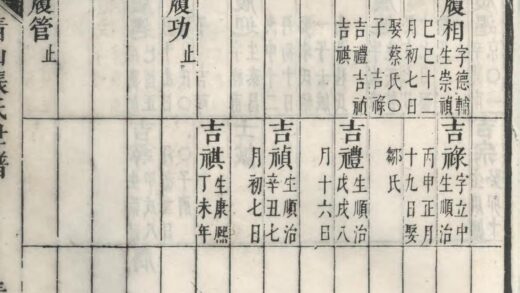 履相字德
生崇禎
己巳十二
月初七日
娶蔡氏〇
子 吉祿
吉禮吉禎
吉祺
履功止
履管止
吉祿字立中
生順治
丙申正月
十九日娶
鄒氏
吉禮生順治
戊戌八
月十六日
吉禎生順治
辛丑七
月初七日
吉祺生康熙
丁未年
山張氏世譜